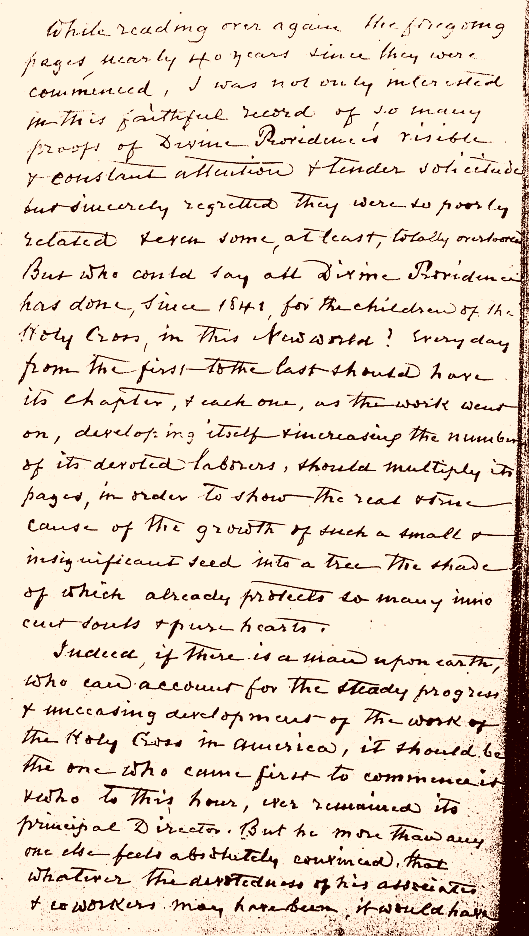 While reading over again the foregoing
pages, nearly 40 years since they were
commenced, I was not only interested
in this faithful record of so many
proofs of Divine Providence's visible
& constant attention & tender solicitude
but sincerely regretted they were so poorly
related & even some, at least, totally overlooked
But who could say all Divine Providence
has done, since 1841, for the children of the
Holy Cross, in this New world? Every day
from the first to the last should have
its chapter, & each one, as the work went
on, developing itself & increasing the number
of its devoted laborers, should multiply its
pages, in order to show the real & true
cause of the growth of such a small &
insignificant seed into a tree the shade
of which already protects so many inno
cent souls & pure hearts.
Indeed, if there is a man upon earth,
who can account for the steady progress
& unceasing development of the work of
the Holy Cross in America, it should be
the one who came first to commence it
& who to this hour, ever remained its
principal Director. But he more than any
one else feels absolutely convinced, that
whatever the devotedness of his associates
& coworkers may have been, it would have